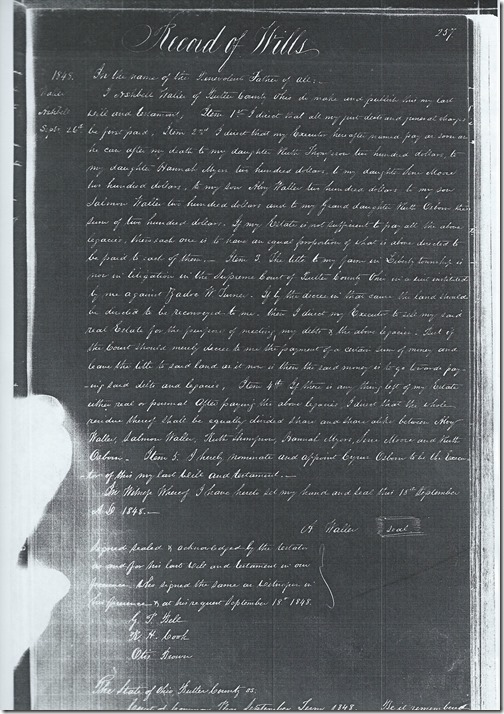 257
Record of Wills
1848. In the name of the Benevolent Father of all:-
I Ashbell Waller of Butler County Ohio do make and publish this my last
Ashbell will and testament, Item 1st I direct that all my just debts and general charges
Sept 26th be first paid; Item 2nd I direct that my Executor hereafter named pay as soon as
he can after my death to my daughter Ruth Thompson two hundred dollars, to
my daughter Hannah Myers two hundred dollars to my daughter Jene Moore
two hundred dollars, to my son Alvy Waller two hundred dollars to my son
Salmon Waller two hundred dollars and to my Grand daughter Ruth Osborn the
sum of two hundred dollars. If my Estate is not sufficient to pay all the above
legacies, then each one is to have an equal proportion of what is above directed to
be paid to each of them. - Item 3. The title to my farm in Liberty township is
now in litigation in the Supreme Court of Butler County Ohio in a suit instituted
by me against W Turner. If by the decree in that cause the land should
be directed to be reconveyed to me, then I direct my Executor to sell my said
real Estate for the purpose of meeting my debts & the above legacies - But if
the Court should merely decree to me the payment of a certain sum of money and
leave the title to said land as it now is then the said money is to go towards pay-
ing said debts and legacies; Item 4th If there is any thing left of my Estate
either real or personal After paying the above legacies I direct that the whole
residue thereof shall be equally divided share and share alike between Alvy
Waller, Salmon Waller, Ruth Thompson, Hannah Myers, Jene Moore and Ruth
Osborn. - Item 5. I hereby nominate and appoint Cyrus Osborn to be the Execu-
tor of this my last will and testament. -
In Witness Whereof I have hereto set my hand and seal this 18th September
A.D. 1848. -
A Waller seal
Signed sealed & acknowledged by the testator
as and for his last will and testament in our
presence. who signed the same as witnesses in
his presence & at his request September 18th 1848.
H. Cook
Otis Brown
The State of Ohio Butler County ss.
September Term 1848. Be it remembered